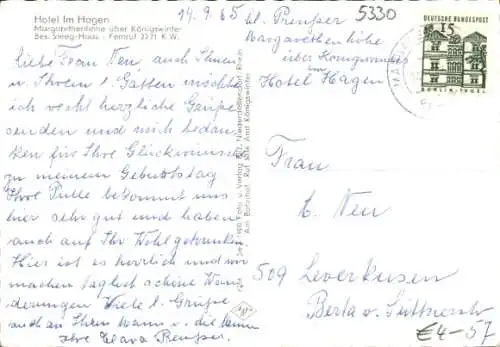 Hotel Im Hagen
Margarethenhöhe über Königswinter
Bes. Sineg-Haus · Fernruf 2271 K.W.
19.9.65
Cl. Preußer
5330
Margarethenhöhe
über Königswinter
Hotel Hagen
DEUTSCHE BUNDESPOST
15
BERLIN-TEGEL
Liebe Frau Neu auch Ihnen
u Ihrem l. Gatten möchte
ich recht herzliche Grüße
senden und mich bedan-
ken für Ihre Glückwünsche
zu meinem Geburtstag
Ihre Pulle bekommt uns
hier sehr gut und haben
auch auf Ihr Wohl getrunken.
Hier ist es herrlich und wir
machen täglich schöne Wan-
derungen Viele l. Grüße
auch an Ihren Mann u. die
Ihre Clara Preußer.
Foto u. Verlag
Niederdollendorf/Rhein
Am Bahnhof, Ruf Amt Königswinter
Frau
C. Neu
509 Leverkusen
Berta v. Suttnerstr
€4-57